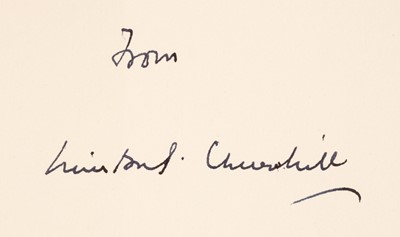 From
Winston S. Churchill